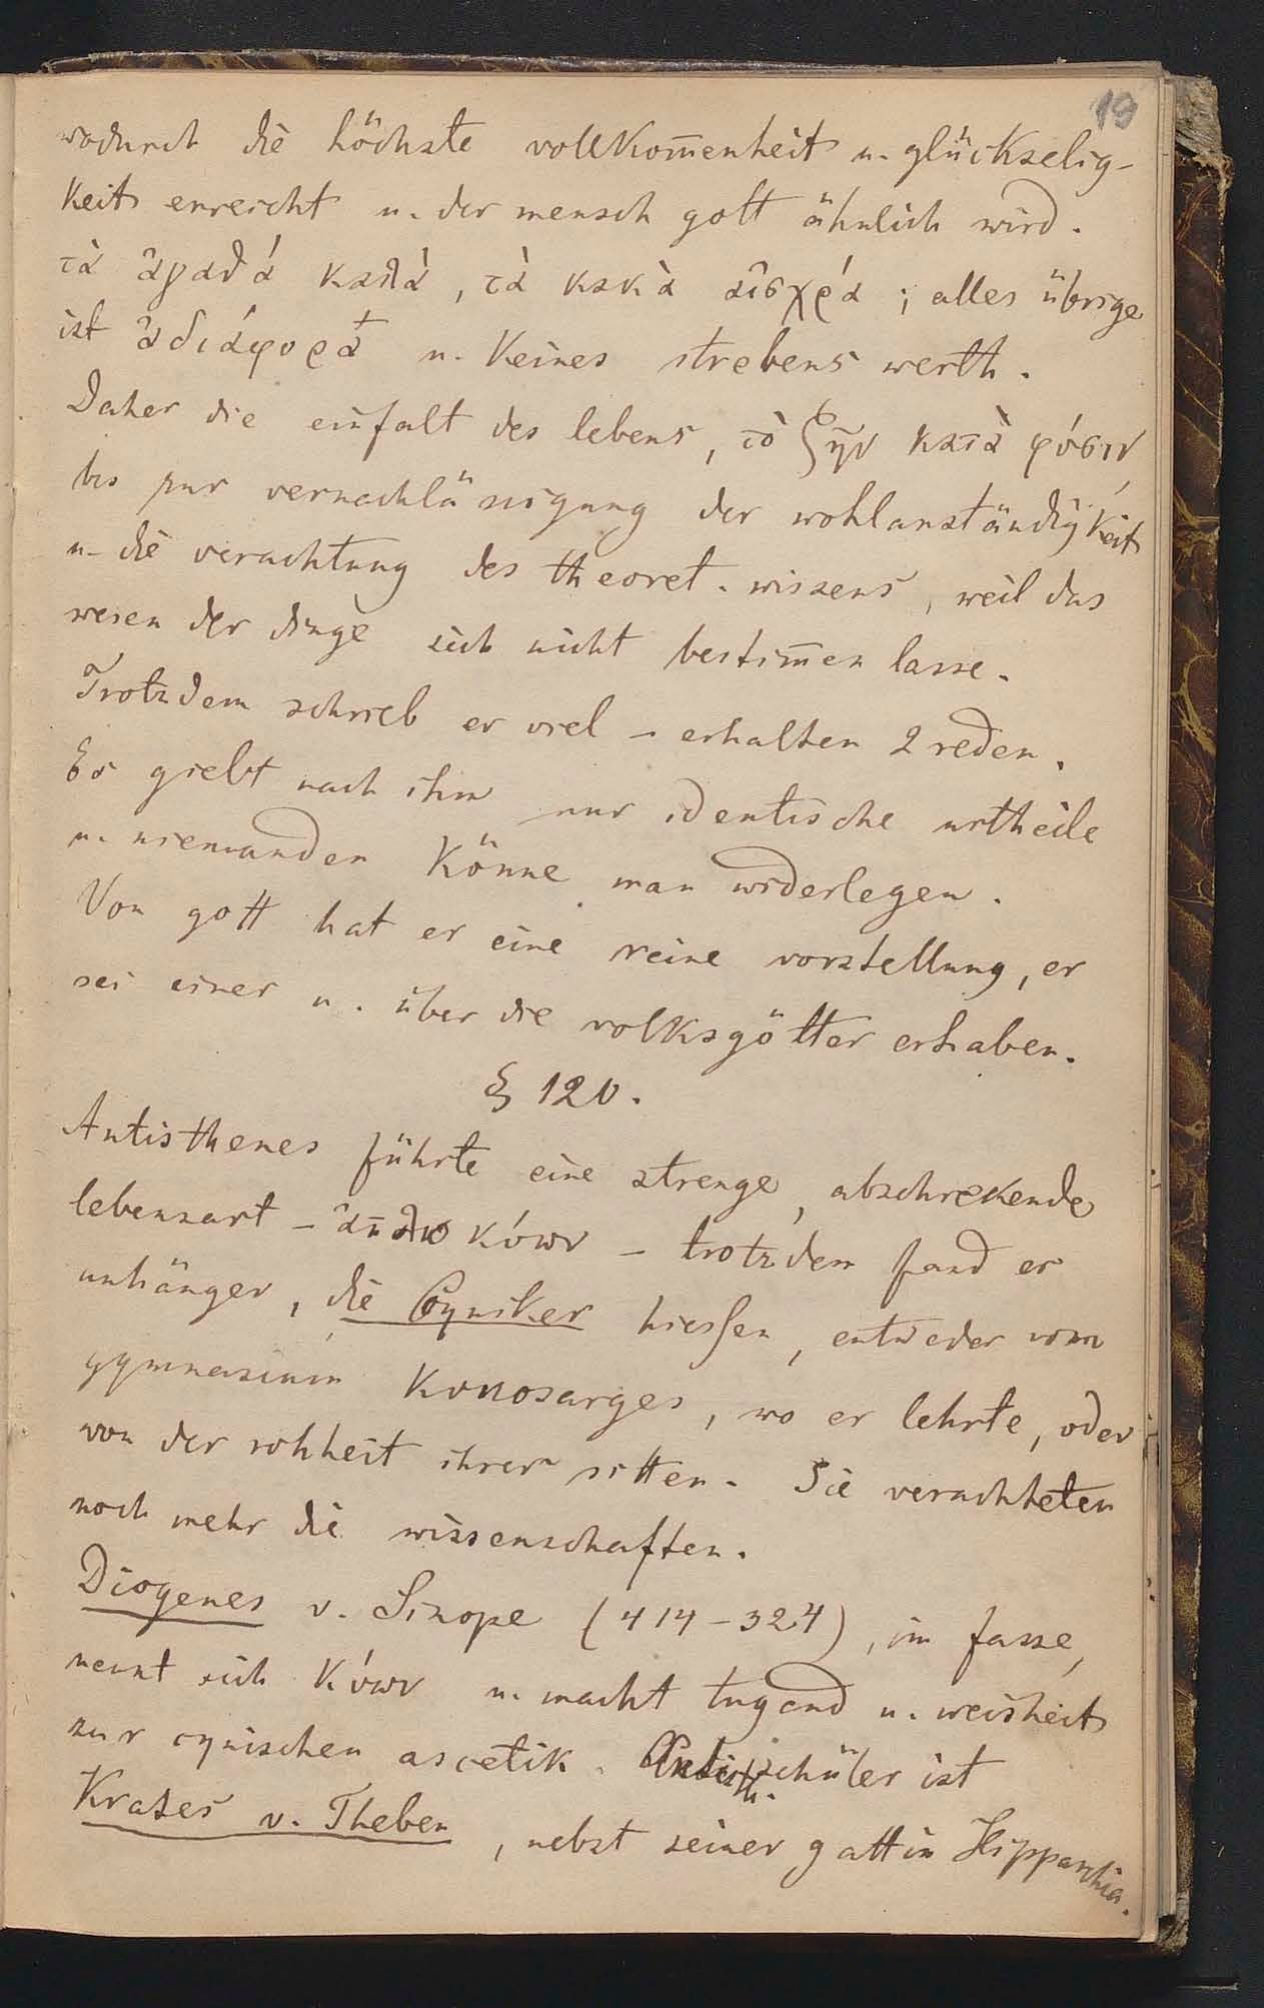 19
wodurch die höchste vollkom̅enheit u. glückselig-
keit erreicht u. der mensch gott ähnlich wird.
τὰ ἀγαθά καλά, τὰ κακὰ αἰσχρά; alles übrige
ist ἀδιάφορα u. keines strebens werth.
Daher die einfalt des lebens, τὸ ζῆν κατὰ φύσιν,
bis zur vernachlässigung der wohlanständigkeit
u. die verachtung des theoret. wissens, weil das
wesen der dinge sich nicht bestim̅en lasse.
Trotzdem schrieb er viel – erhalten 2 reden.
Es giebt nach ihm nur identische urtheile
u. niemanden könne man widerlegen.
Von gott hat er eine reine vorstellung, er
sei einer u. über die volksgötter erhaben.
§ 120.
Antisthenes führte eine strenge, abschrekende
lebensart – ἁπλοκύων – trotzdem fand er
anhänger, die Cyniker hiessen, entweder vom
gymnasium Kynosarges, wo er lehrte, oder
von der rohheit ihrer sitten. Sie verachteten
noch mehr die wissenschaften.
Diogenes v. Sinope (414–324), im fasse,
nennt sich κύων u. macht tugend u. weisheit
zur cynischen ascetik. Antisth. schüler ist
Krates v. Theben, nebst seiner gattin Hipparchia.